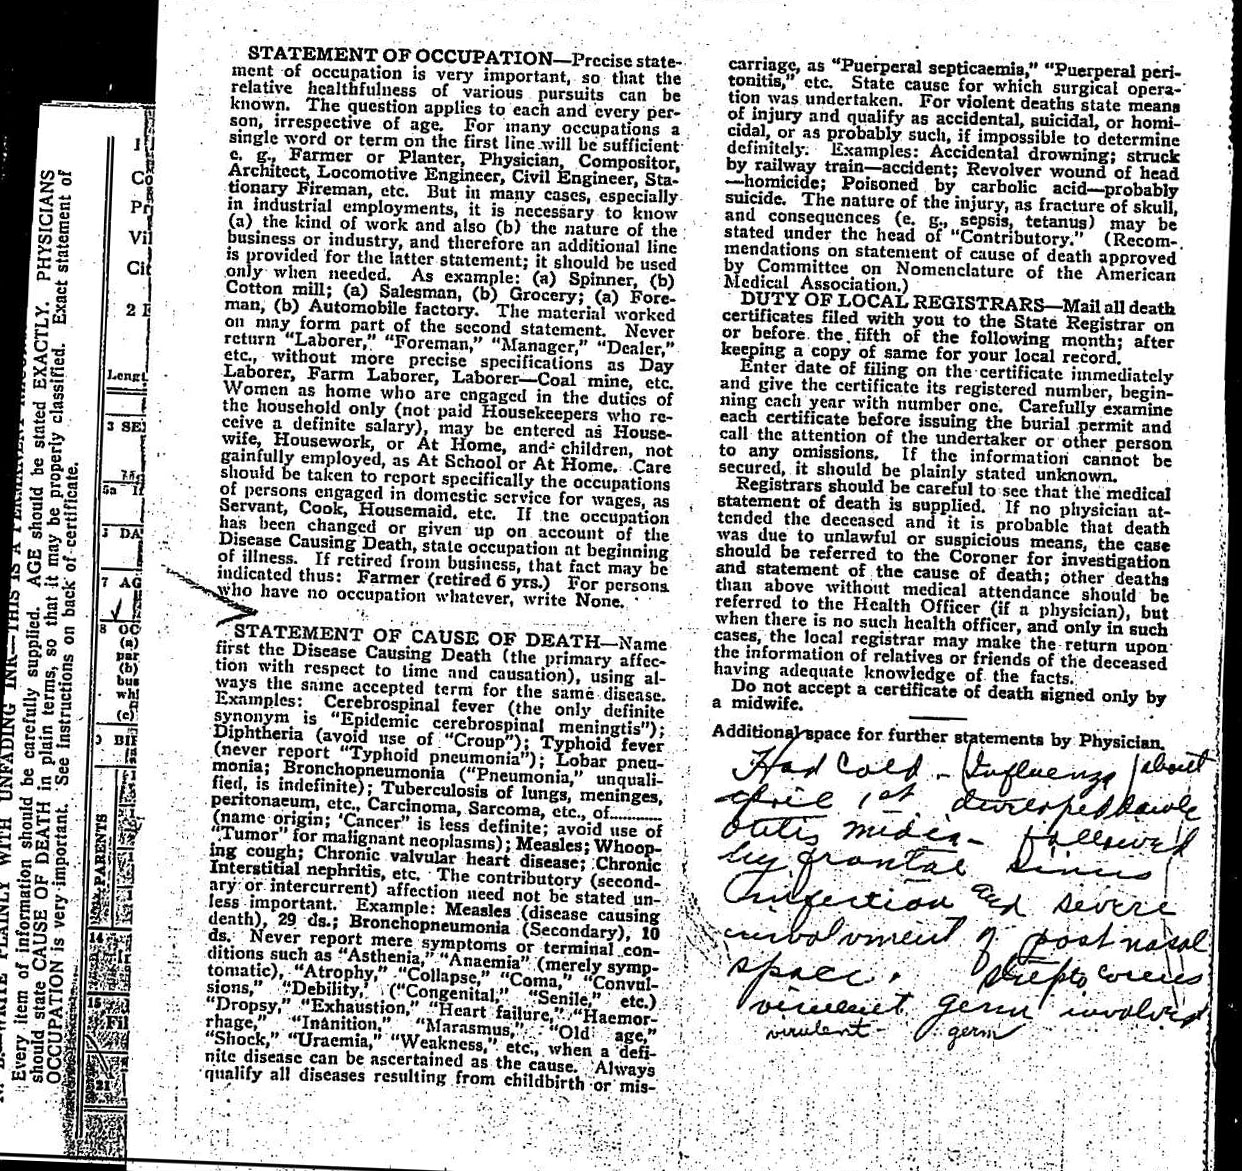 STATEMENT OF OCCUPATION—Precise state-
ment of occupation is very important, so that the
relative healthfulness of various pursuits can be
known. The question applies to each and every per-
son, irrespective of age. For many occupations a
single word or term on the first line will be sufficient
e. g., Farmer or Planter, Physician, Compositor,
Architect, Locomotive Engineer, Civil Engineer, Sta-
tionary Fireman, etc. But in many cases, especially
in industrial employments, it is necessary to know
(a) the kind of work and also (b) the nature of the
business or industry, and therefore an additional line
is provided for the latter statement; it should be used
only when needed. As example: (a) Spinner, (b)
Cotton mill; (a) Salesman, (b) Grocery; (a) Fore-
man, (b) Automobile factory. The material worked
on may form part of the second statement. Never
return "Laborer," "Foreman," "Manager," "Dealer,"
etc., without more precise specifications as Day
Laborer, Farm Laborer, Laborer—Coal mine, etc.
Women as home who are engaged in the duties of
the household only (not paid Housekeepers who re-
ceive a definite salary), may be entered as House-
wife, Housework, or At Home, and children, not
gainfully employed, as At School or At Home. Care
should be taken to report specifically the occupations
of persons engaged in domestic service for wages, as
Servant, Cook, Housemaid, etc. If the occupation
has been changed or given up on account of the
Disease Causing Death, state occupation at beginning
of illness. If retired from business, that fact may be
indicated thus: Farmer (retired 6 yrs.) For persons
who have no occupation whatever, write None.
STATEMENT OF CAUSE OF DEATH—Name
first the Disease Causing Death (the primary affec-
tion with respect to time and causation), using al-
ways the same accepted term for the same disease.
Examples: Cerebrospinal fever (the only definite
synonym is "Epidemic cerebrospinal meningtis");
Diphtheria (avoid use of "Croup"); Typhoid fever
(never report "Typhoid pneumonia"); Lobar pneu-
monia; Bronchopneumonia ("Pneumonia," unquali-
fied, is indefinite); Tuberculosis of lungs, meninges,
peritonaeum, etc., Carcinoma, Sarcoma, etc., of..........
(name origin; 'Cancer" is less definite; avoid use of
"Tumor" for malignant neoplasms); Measles; Whoop-
ing cough; Chronic valvular heart disease; Chronic
Interstitial nephritis, etc. The contributory (second-
ary or intercurrent) affection need not be stated un-
less important. Example: Measles (disease causing
death), 29 ds.; Bronchopneumonia (Secondary), 10
ds. Never report mere symptoms or terminal con-
ditions such as "Asthenia," "Anaemia" (merely symp-
tomatic), "Atrophy," "Collapse," "Coma," "Convul-
sions," "Debility," ("Congenital," "Senile," etc.)
"Dropsy," "Exhaustion," "Heart failure," "Haemor-
rhage," "Inanition," "Marasmus," "Old age,"
"Shock," "Uraemia," "Weakness," etc., when a defi-
nite disease can be ascertained as the cause. Always
qualify all diseases resulting from childbirth or mis-
carriage, as "Puerperal septicaemia," "Puerperal peri-
tonitis," etc. State cause for which surgical opera-
tion was undertaken. For violent deaths state means
of injury and qualify as accidental, suicidal, or homi-
cidal, or as probably such, if impossible to determine
definitely. Examples: Accidental drowning; struck
by railway train—accident; Revolver wound of head
—homicide; Poisoned by carbolic acid—probably
suicide. The nature of the injury, as fracture of skull,
and consequences (e. g., sepsis, tetanus) may be
stated under the head of "Contributory." (Recom-
mendations on statement of cause of death approved
by Committee on Nomenclature of the American
Medical Association.)
DUTY OF LOCAL REGISTRARS—Mail all death
certificates filed with you to the State Registrar on
or before the fifth of the following month; after
keeping a copy of same for your local record.
Enter date of filing on the certificate immediately
and give the certificate its registered number, begin-
ning each year with number one. Carefully examine
each certificate before issuing the burial permit and
call the attention of the undertaker or other person
to any omissions. If the information cannot be
secured, it should be plainly stated unknown.
Registrars should be careful to see that the medical
statement of death is supplied. If no physician at-
tended the deceased and it is probable that death
was due to unlawful or suspicious means, the case
should be referred to the Coroner for investigation
and statement of the cause of death; other deaths
than above without medical attendance should be
referred to the Health Officer (if a physician), but
when there is no such health officer, and only in such
cases, the local registrar may make the return upon
the information of relatives or friends of the deceased
having adequate knowledge of the facts.
Do not accept a certificate of death signed only by
a midwife.
Additional space for further statements by Physician.
Had Cold - Influenza about
April 1st developed
otitis media - followed
by frontal sinus
infection and severe
involvment of post nasal
space. Streptococcus
virulent germ involved
virulent germ
Every item of information should be carefully supplied. AGE should be stated EXACTLY. PHYSICIANS
should state CAUSE OF DEATH in plain terms, so that it may be properly classified. Exact statement of
OCCUPATION is very important. See instructions on back of certificate.
PARENTS